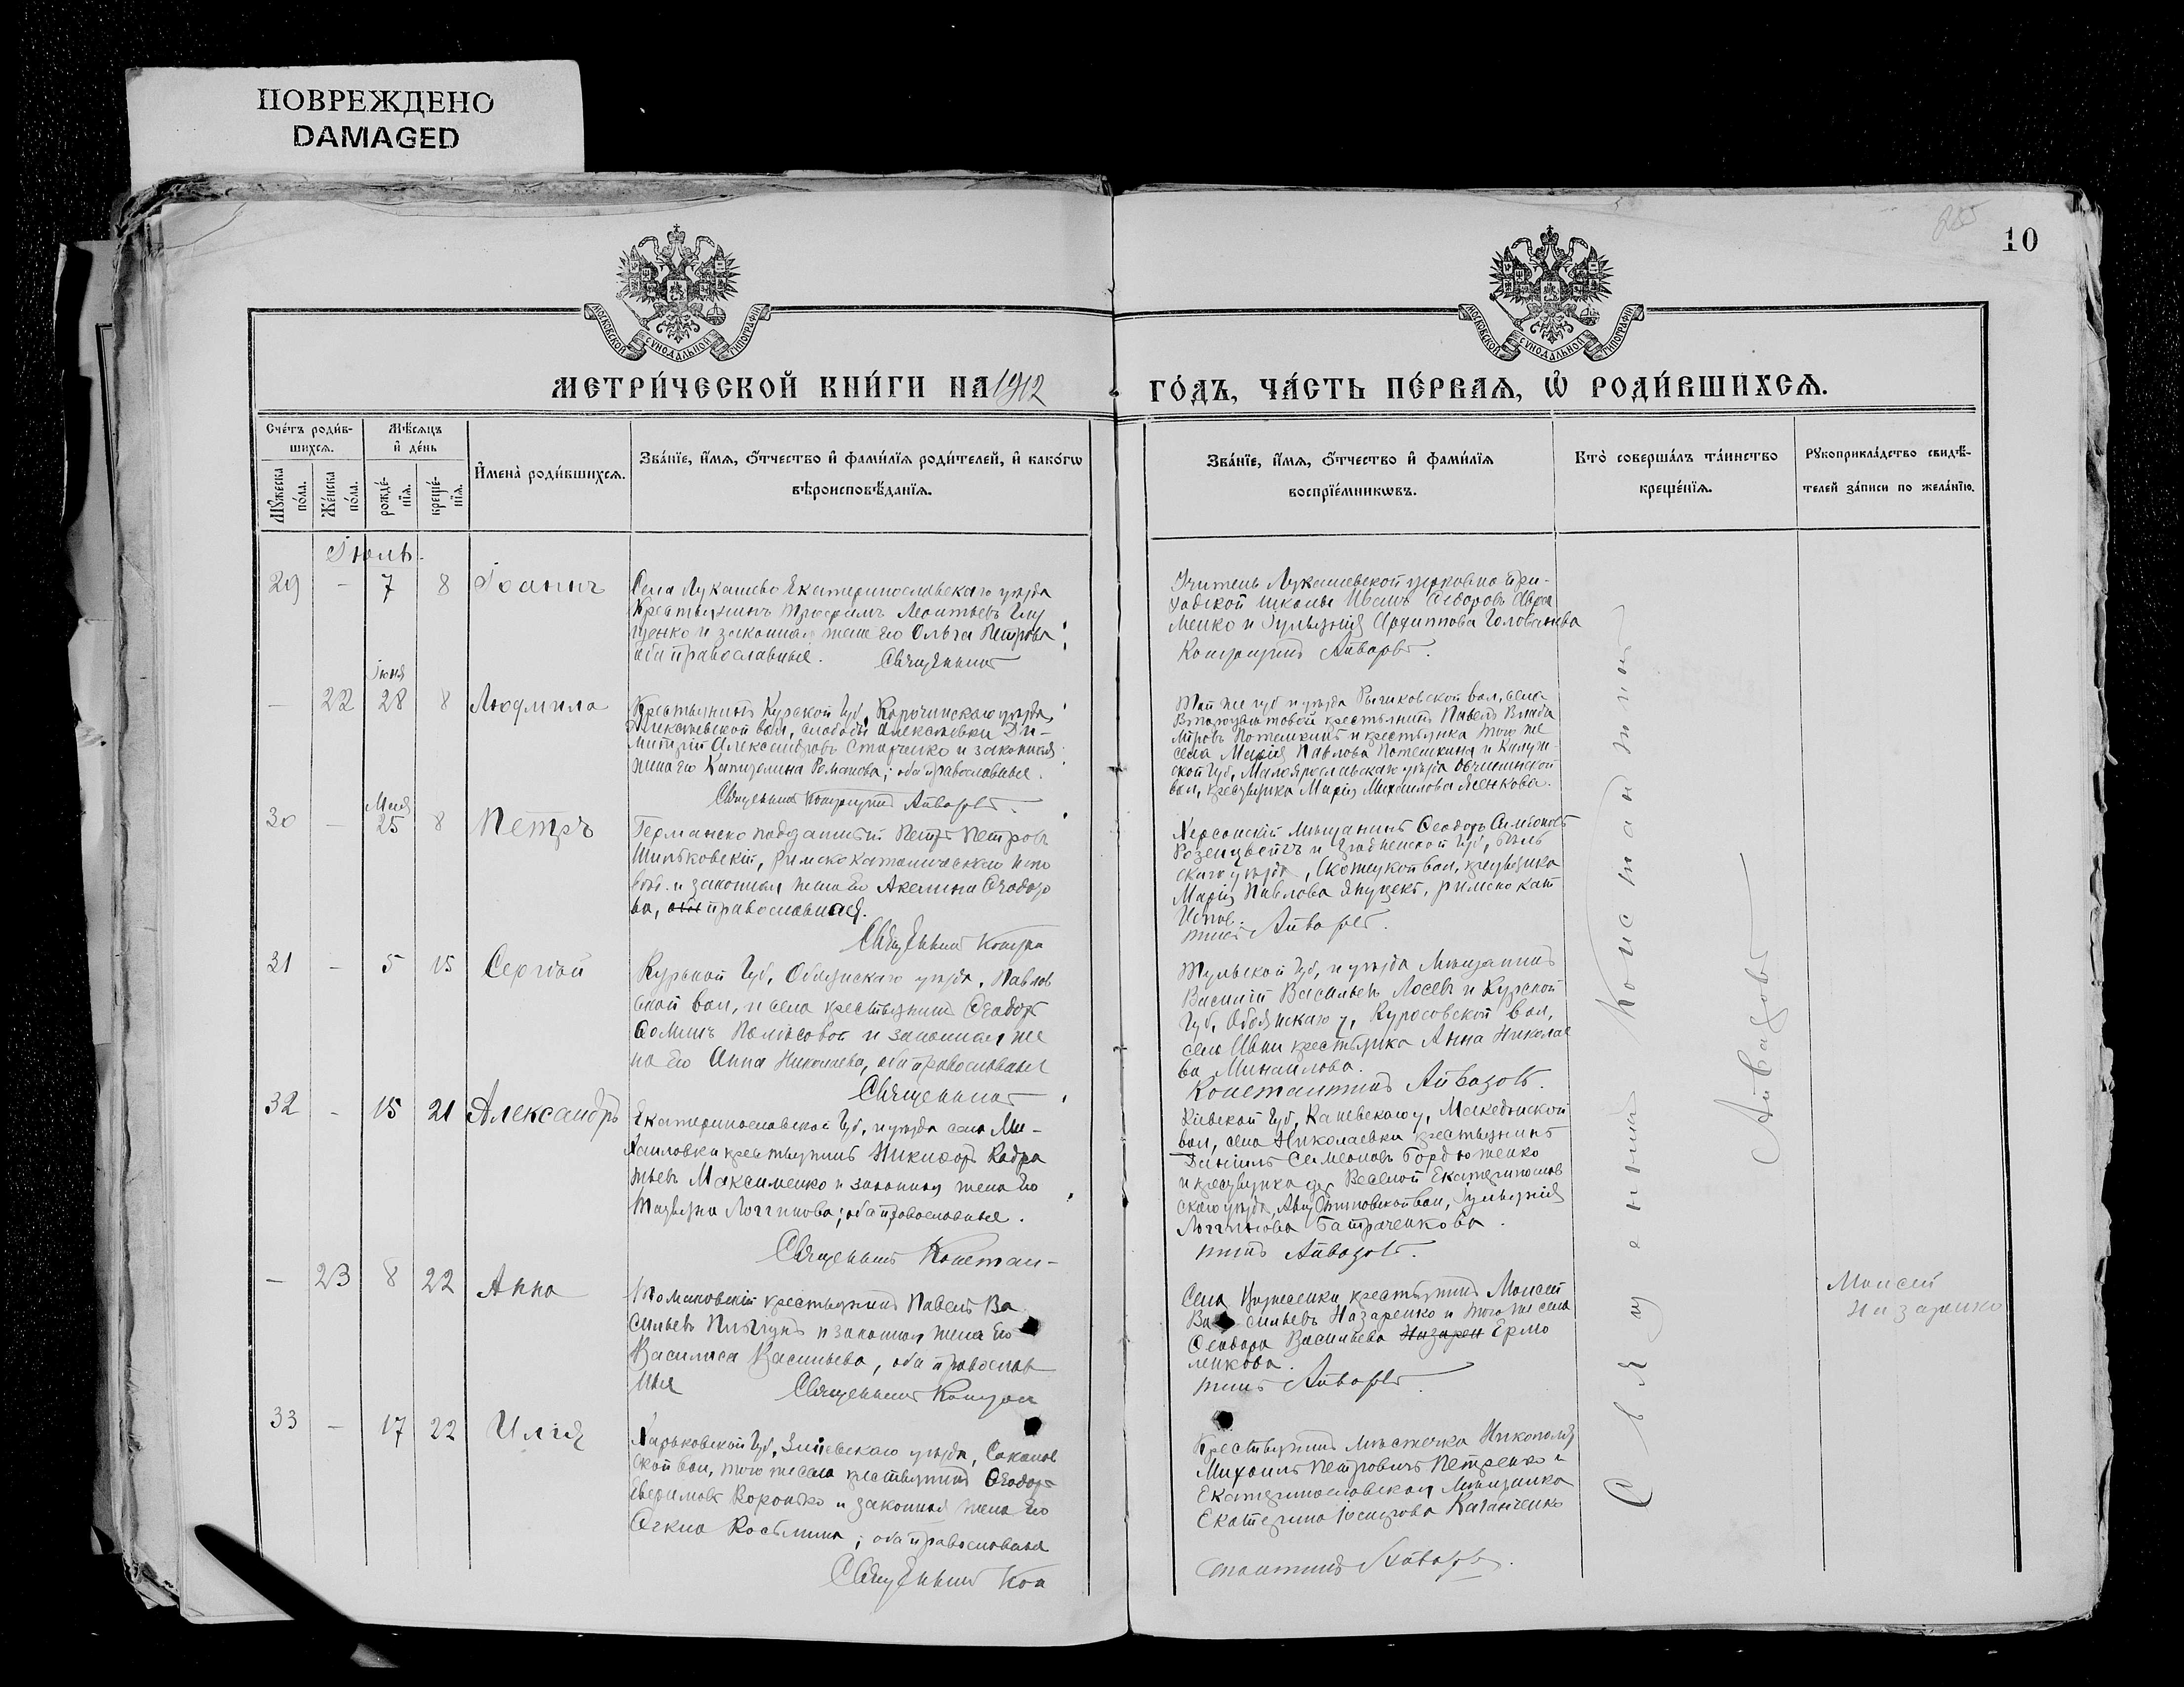 ПОВРЕЖДЕНО
DAMAGED
10
МОСКОВСКОЙ СѴНОДАЛЬНОЙ ТИПОГРАФІИ
МОСКОВСКОЙ СѴНОДАЛЬНОЙ ТИПОГРАФІИ
МЕТРИ́ЧЕСКОЙ КНИ́ГИ НА 1912 ГО́ДЪ, ЧА́СТЬ ПЕ́РВАѦ, Ѡ҆ РОДИ́ВШИХСѦ.
Сче́тъ роди́в-
шихсѧ.
Мꙋжеска по́ла.
Же́нска по́ла.
Мѣ́сѧцъ
и҆ де́нь
рожде́-
нїѧ.
креще́-
нїѧ.
И҆мена̀ роди́вшихсѧ.
Зва́нїе, и҆́мѧ, ѻ҆́тчество и҆ фами́лїѧ роди́телей, и҆ како́гѡ
вѣроисповѣ́данїѧ.
Зва́нїе, и҆́мѧ, ѻ҆́тчество и҆ фами́лїѧ
воспрїе́мникѡвъ.
Кто̀ соверша́лъ та́инство
креще́нїѧ.
Рꙋкоприкла́дство свидѣ́-
телей за́писи по жела́нїю.
Іюль.
29 - 7 8 Іоаннъ
Села Лукашево Екатеринославскаго уѣзда
крестьянинъ Трофимъ Леонтьевъ Глу
щенко и законная жена его Ольга Петрова
оба православные. Священникъ
Учитель Лукашевской церковно при-
ходской школы Иванъ Ѳедоровъ Авра
менко и Гульянія Архиппова Голованева
Айвазовъ.
Іюня
— 22 28 8 Людмила
Крестьянинъ Курской губ, Корочинскаго уѣзда,
Алексѣевской вол, слободы Алексѣевки Ди-
митрій Александровъ Старченко и законная
жена его Капитолина Романова; оба православные.
Священникъ Айвазовъ.
Той же губ и уѣзда вол, села
крестьянинъ Павелъ Влади
міровъ Потемкинъ и крестьянка того же
села Марія Павлова Потемкина и Калуж-
ской губ, Малоярославскаго уѣзда
вол, крестьянка Марія Михаилова
Мая
30 — 25 8 Петръ
Германско подданный Петръ Петровъ
Шильковскій, римско католическаго испо
вѣд. и законная жена его Акелина Ѳеодоро
ва, оба православная.
Священникъ
Херсонскій мѣщанинъ Ѳеодоръ Симеоновъ
Розенцвейгъ и Гродненской губ, Бѣль
скаго уѣзда, вол, крестьянка
Марія Павлова римско кат
испов.
Айвазовъ.
31 - 5 15 Сергѣй
Курской губ, Обоянскаго уѣзда, Павлов
ской вол, и села крестьянинъ Ѳеодоръ
Ѳоминъ и законная же
на его Анна Николаева, оба православные
Священникъ
Тульской губ, и уѣзда мѣщанинъ
Василій Васильевъ Лосевъ и Курской
губ, Обоянскаго у, вол,
села Ивни крестьянка Анна Николае
ва Минаилова.
Константинъ Айвазовъ.
32 - 15 21 Александръ
Екатеринославской губ, и уѣзда села Ми-
хаиловки крестьянинъ Никифоръ Кодра
тьевъ Максименко и законная жена его
Татьяна Логгинова; оба православные.
Священникъ Констан-
Кіевской губ, Каневскаго у, Македонской
вол, села Николаевки крестьянинъ
Даніилъ Симеоновъ Бордюженко
и крестьянка дер Веселой Екатеринослав
скаго уѣзда, Августиновской вол, Гульянія
Логгинова Батраченкова.
тинъ Айвазовъ.
— 23 8 22 Анна
Томаковскій крестьянинъ Павелъ Ва
сильевъ и законная жена его
Василиса Васильева, оба православ
ные Священникъ
Села Вознесенки крестьянинъ Моисей
Васильевъ Назаренко и того же села
Ѳеодора Васильева Назарен Ермо
ленкова.
тинъ Айвазовъ.
Моисей
Назаренко
33 — 17 22 Илія
Харьковской губ, Зміевскаго уѣзда,
ской вол, того же села крестьянинъ Ѳеодоръ
Евфимовъ Воронько и законная жена его
Ѳекла Косьмина; оба православные
Священникъ Кон
Крестьянинъ мѣстечка Никополя
Михаилъ Петровичъ Петренко и
Екатеринославская мѣщанка
Екатерина Іосифова Каганченко
стантинъ Айвазовъ.
Священникъ Константинъ
Айвазовъ